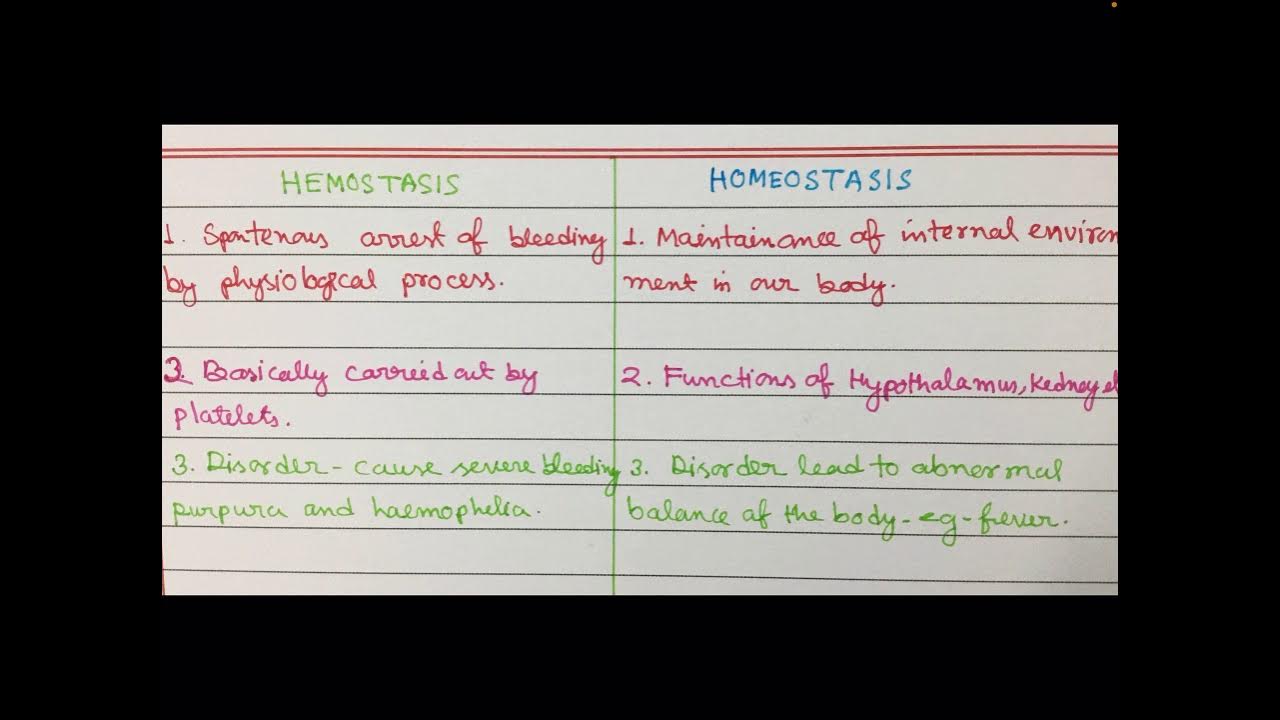 HEMOSTASIS
HOMEOSTASIS
1. Spontenous arrest of bleeding
by physiological process.
1. Maintainance of internal environ
ment in our body.
2. Basically carried out by
platelets.
2. Functions of Hypothalamus, Kedney
3. Disorder - cause severe bleeding
purpura and haemophelia.
3. Disorder lead to abnormal
balance of the body - eg - fever.